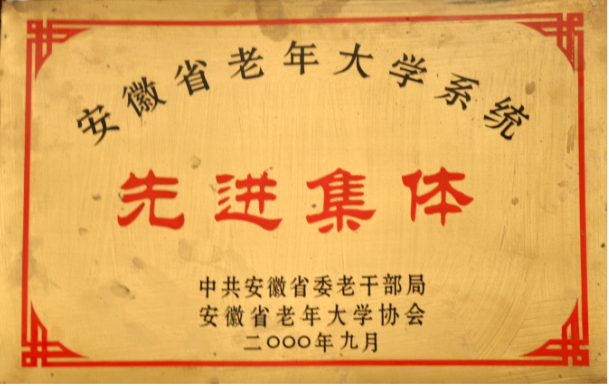 安徽省老年大学系统
先进集体
中共安徽省委老干部局
安徽省老年大学协会
二〇〇〇年九月